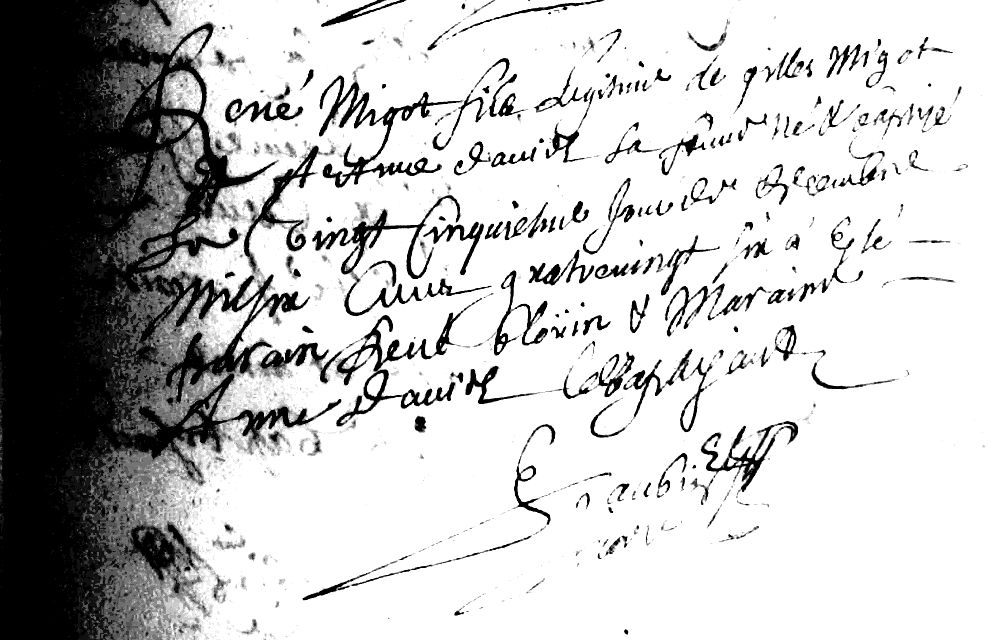 René Migot fils Legitime de gilles Migot
Et d'Anne dauid sa femme né & baptizé
Le vingt cinquiesme Jour de decembre
Mil six Cens quatrevingt six a Esté
parain René bloüin & Maraine
Anne dauid